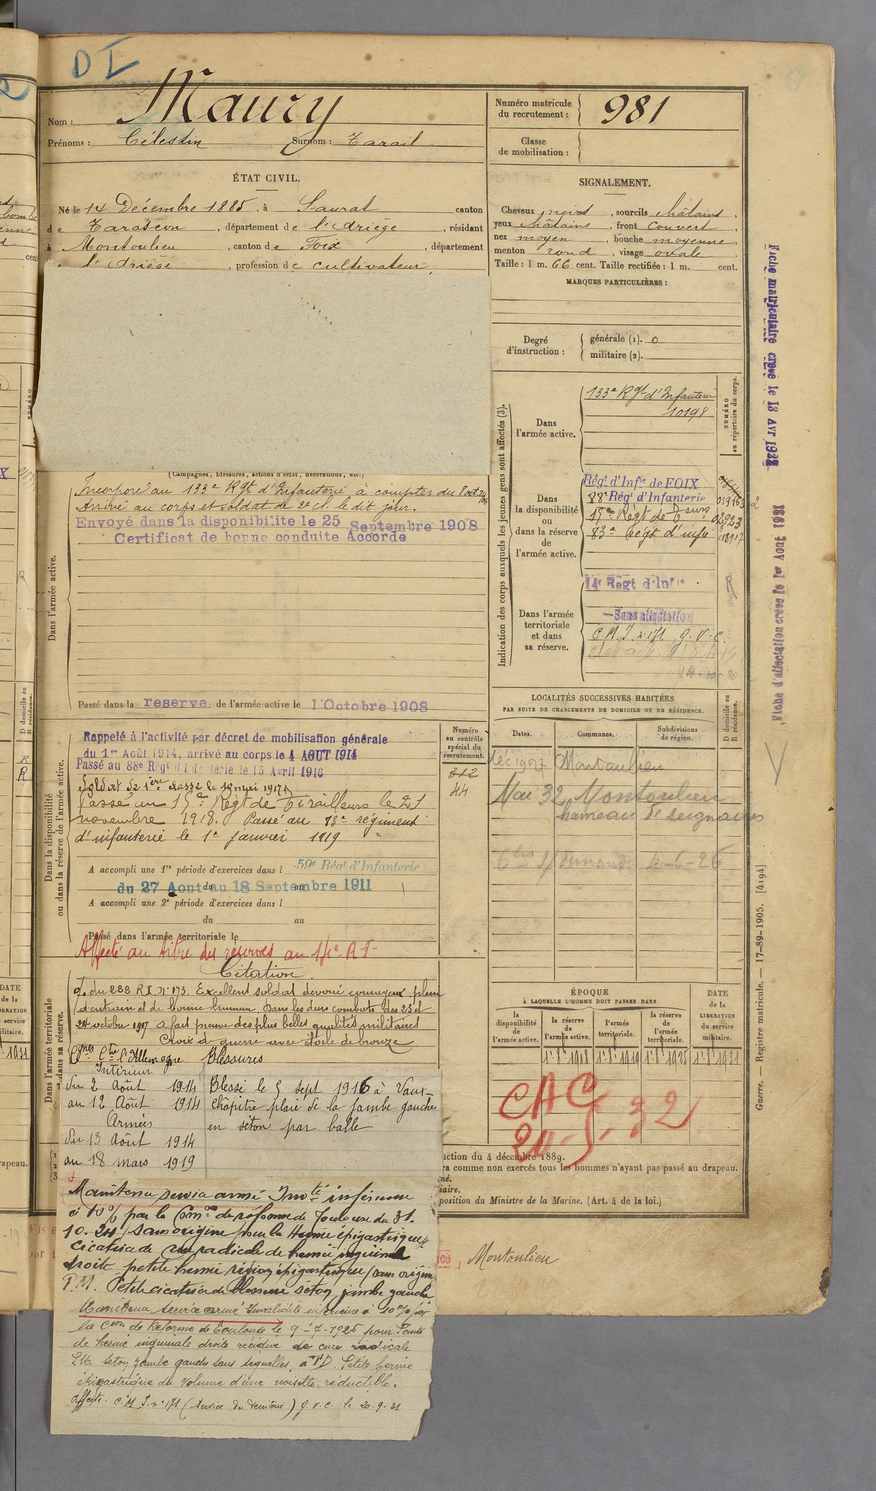 DI
Nom : Maury
Prénoms : Célestin Surnom : Tarail
ÉTAT CIVIL.
Né le 14 Décembre 1885, à Saurat canton
de Tarascon, département de l'Ariège, résidant
à Montoulieu, canton de Foix, département
l'Ariège, profession de cultivateur,
Numéro matricule
du recrutement : 981
Classe
de mobilisation :
SIGNALEMENT.
Cheveux noirs, sourcils châtains,
yeux châtains, front couvert
nez moyen, bouche moyenne
menton rond, visage ovale
Taille : 1 m. 66 cent. Taille rectifiée : 1 m. cent.
MARQUES PARTICULIÈRES :
Degré
d'instruction :
générale (1). 0
militaire (2).
(Campagnes, blessures, actions d'éclat, décorations, etc.)
Dans l'armée active.
Incorporé au 133e Rgt d'Infanterie à compter du 8 oct
Arrivé au corps et soldat de 2e cl. le dit jour.
Envoyé dans la disponibilite le 25 Septembre 1908
Certificat de bonne conduite Accordé
Passé dans la reserve de l'armée active le 1 Octobre 1908
Indication des corps auxquels les jeunes gens sont affectés (3).
NUMÉRO
au répertoire du corps.
Dans
l'armée active.
133e Rgt d'Infanterie
10198
Dans
la disponibilité
ou
dans la réserve
de
l'armée active.
Rég. d'Infie de FOIX
88e Rég. d'Infanterie 019163
15e Regt de Teurs 02923
83e Régt d'infie
Dans l'armée
territoriale
et dans
sa réserve.
14e Regt d'Infie
R
Sans affectation
C.M.I. n° 171 g.v.c.
Dans la disponibilité
ou dans la réserve de l'armée active.
Rappelé à l'activité par décret de mobilisation générale
du 1er Août 1914, arrivé au corps le 4 AOUT 1914
Passé au 88e Rég d'Infanterie le 15 Avril 1916
Soldat de 1ère classe le 10 mai 1917
Passé au 15e Régt de Tirailleurs le 21
novembre 1918. Passé au 83e régiment
d'infanterie le 1er janvier 1919
A accompli une 1re période d'exercices dans l 59e Rég d'Infanterie
du 27 Aout au 18 Septembre 1911
A accompli une 2e période d'exercices dans l
du au
Passé dans l'armée territoriale le
Affecté au titre des réserves au 14e R.I.
Numéro
au contrôle
spécial du
recrutement.
312
44
LOCALITÉS SUCCESSIVES HABITÉES
PAR SUITE DE CHANGEMENTS DE DOMICILE OU DE RÉSIDENCE.
Dates. Communes. Subdivisions
de région.
D domicile ou
R résidence.
Montoulieu
Mai 32 Montoulieu
hameau de Seignaux
Dans l'armée territoriale
et dans sa réserve.
Citation
O. du 288 R.I. n° 173. Excellent soldat dévoué courageux plein
d'entrain et de bonne humeur. Dans les durs combats des 23 et
24 octobre 1917 a fait preuve des plus belles qualités militaires
Croix de guerre avec étoile de bronze
Cgnes Ctre l'Allemagne Blessures
Intérieur
du 2 Août 1914 Blessé le 5 sept 1916 à Vaux-
au 12 Août 1914 Chapitre plaie de la jambe gauche
Armées en séton par balle
du 13 Août 1914
au 18 mars 1919
Maintenu service armé Invté inférieure
à 10% par la Comon de réforme de Toulouse du 31.
10.24 / sans origine pour la Hernie épigastrique
Cicatrice de cure radicale de hernie inguinale
droite petite hernie région épigastrique / sans origine
P.M. Petite cicatrice de blessure séton jambe gauche
Maintenu service armé Invalidité inférieure à 10% par
la Con de Réforme de Toulouse le 9-7-1925 pour Points
de hernie inguinale droite récidive de cure radicale
2° séton jambe gauche sans séquelles, 3° P.D. Petite hernie
épigastrique du volume d'une noisette, réductible.
Affecté C.M.I. n° 171 (Service du Territoire) g.v.c. le 20-9-31
ÉPOQUE
À LAQUELLE L'HOMME DOIT PASSER DANS
la
disponibilité
de
l'armée active.
la réserve
de
l'armée active.
l'armée
territoriale.
la réserve
de
l'armée
territoriale.
DATE
de la
LIBÉRATION
du service
militaire.
CAC
20-5-32
uction du 4 décembre 1889.
ra comme non exercés tous les hommes n'ayant pas passé au drapeau.
position du Ministre de la Marine. (Art. 4 de la loi.)
Montoulieu
Fiche matriculaire créée le 13 Avr 1922
Fiche d'affectation créée le 1er Aout 1931
Guerre. — Registre matricule. — 17-89-1905. [4194]